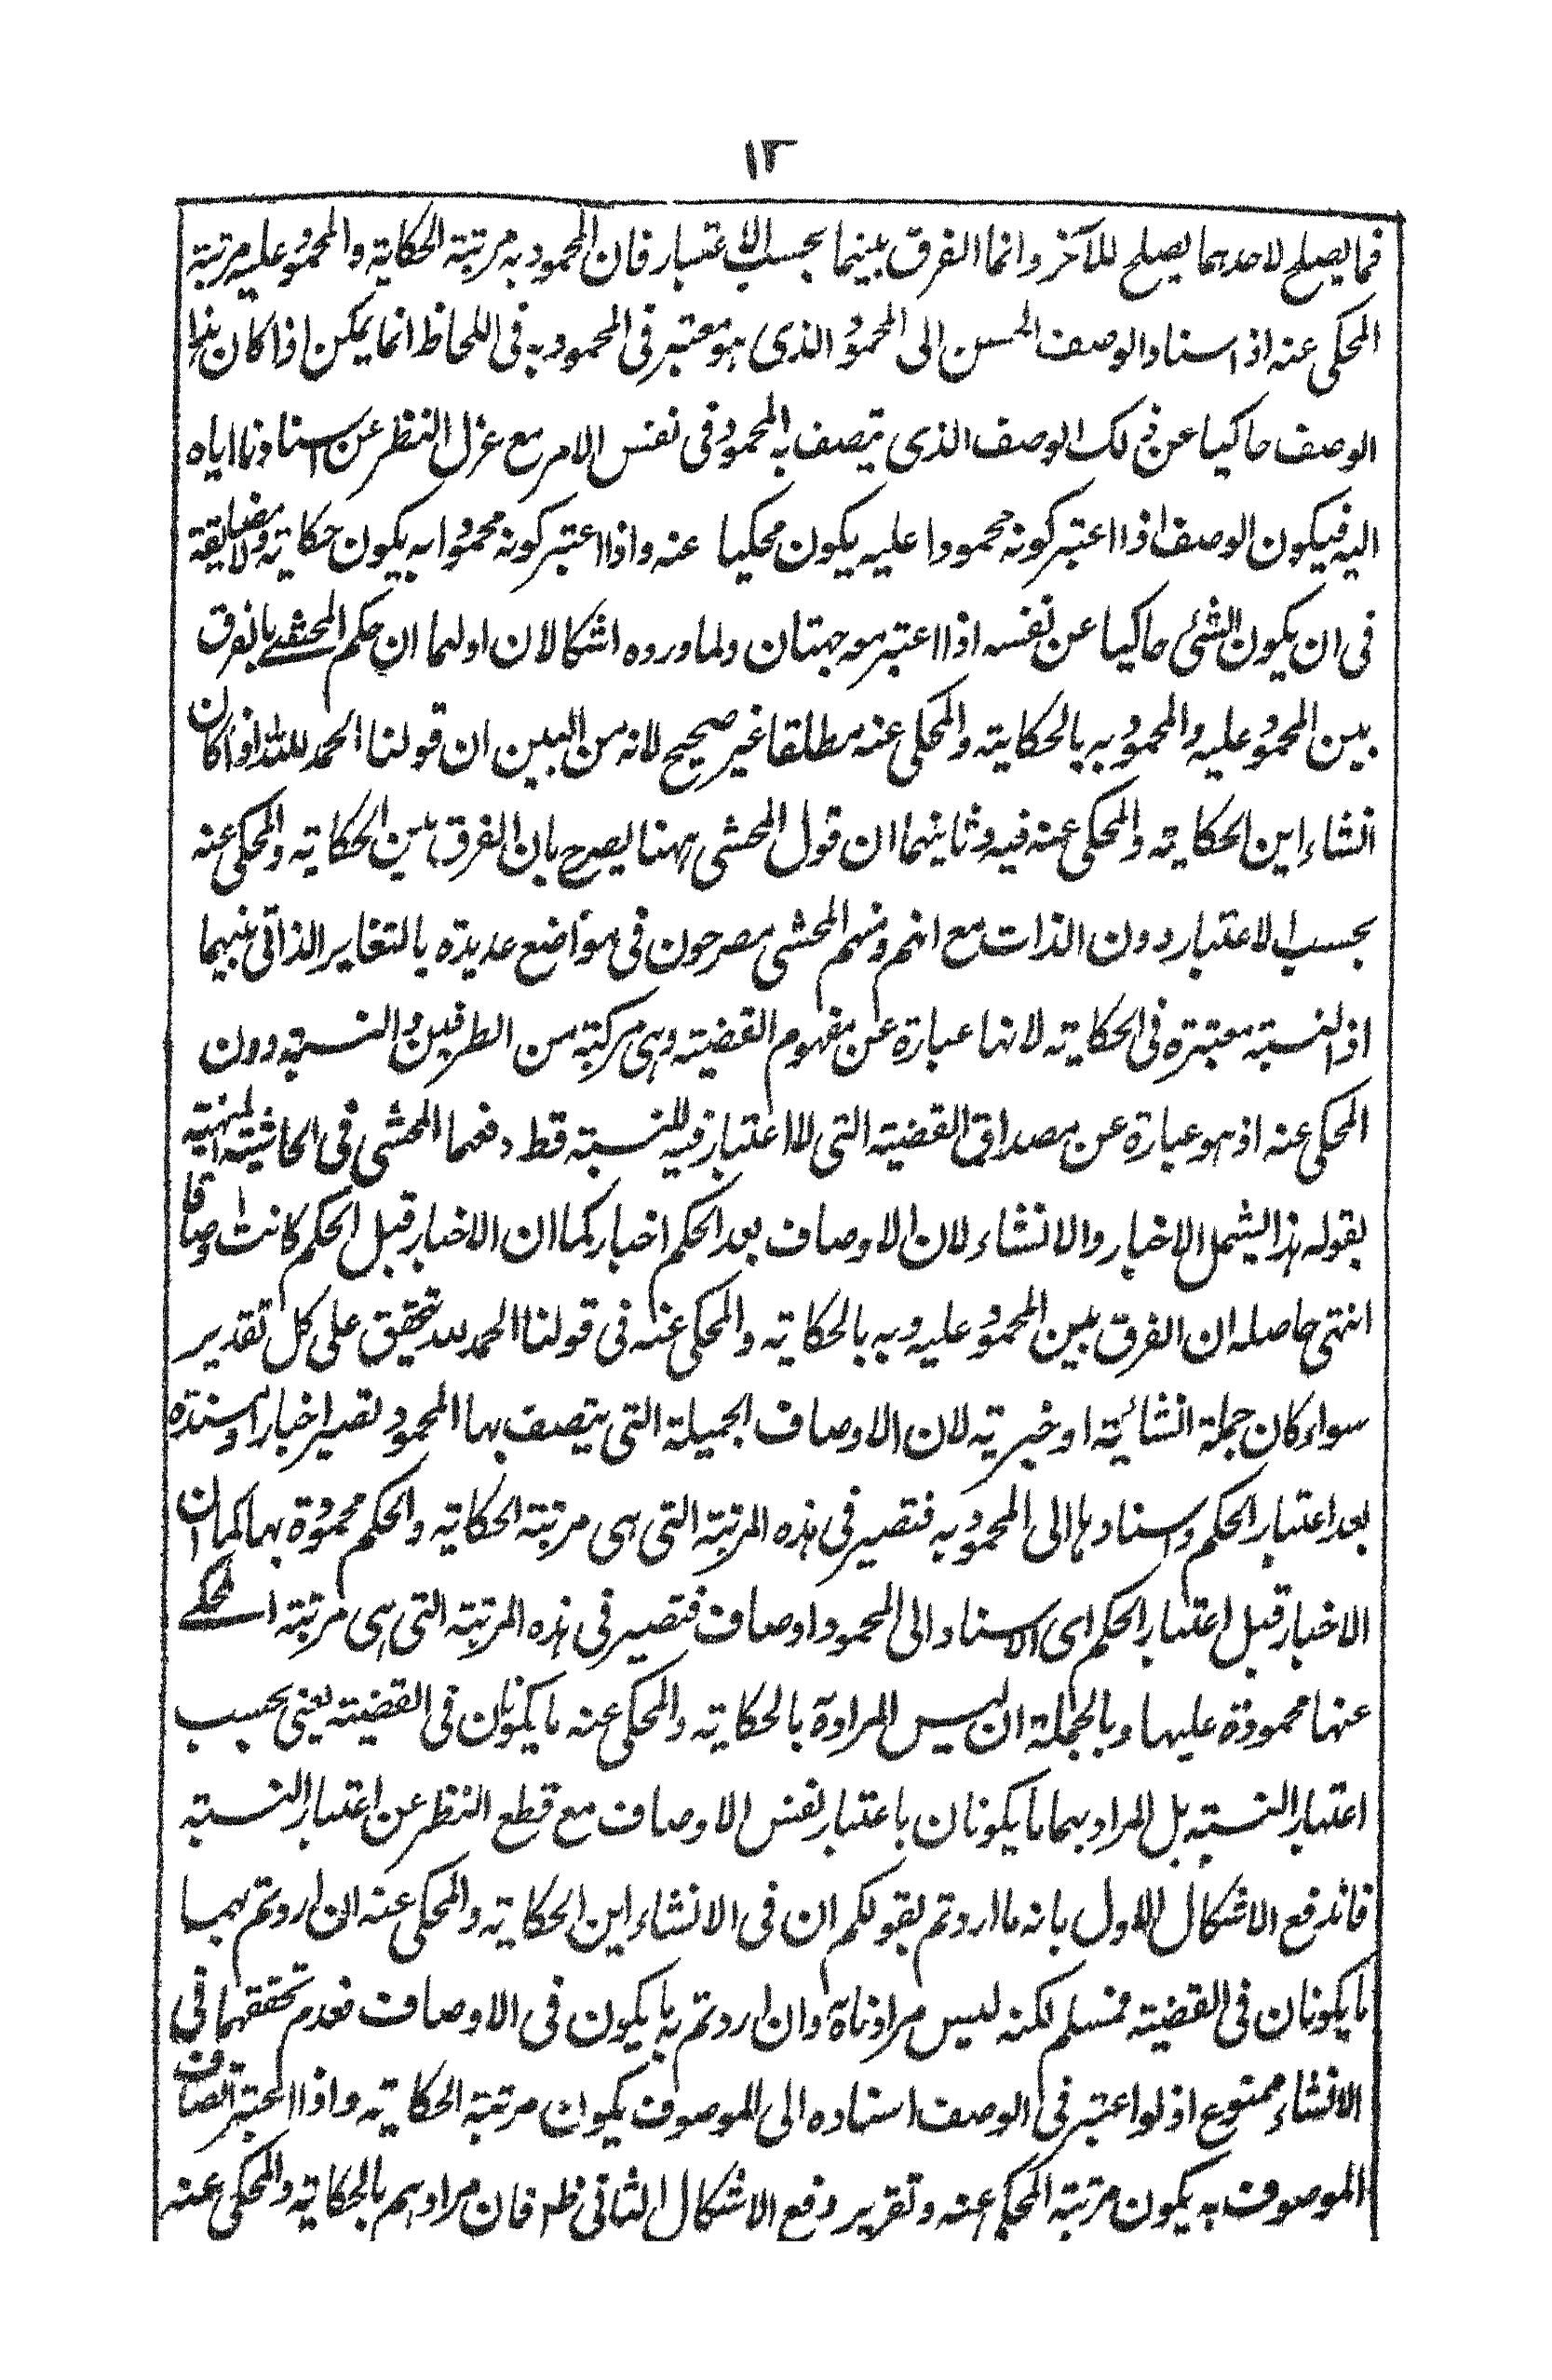 ١٢
فما يصلح لاحدهما يصلح للآخر وانما الفرق بينهما بحسب الاعتبار فان المحمود به مرتبة الحكاية والمحمود عليه مرتبة
المحكى عنه اذ اسناد الوصف الحسن الى المحمود الذى هو معتبر فى المحمود به فى اللحاظ انما يمكن اذا كان هذا
الوصف حاكيا عن ذلك الوصف الذى يتصف به المحمود فى نفس الامر مع عزل النظر عن اسنادنا اياه
اليه فيكون الوصف اذا اعتبر كونه محمودا عليه يكون محكيا عنه واذا اعتبر كونه محمودا به يكون حكاية ولا مضايقة
فى ان يكون الشئ حاكيا عن نفسه اذا اعتبر معه جهتان ولما ورده اشكالان اولهما ان حكم المحشى بالفرق
بين المحمود عليه والمحمود به بالحكاية والمحكى عنه مطلقا غير صحيح لانه من البين ان قولنا الحمد لله اذا كان
انشاء اين الحكاية والمحكى عنه فيه وثانيهما ان قول المحشى ههنا يصرح بان الفرق بين الحكاية والمحكى عنه
بحسب الاعتبار دون الذات مع انهم ومنهم المحشى مصرحون فى مواضع عديدة بالتغاير الذاتى بينهما
اذ النسبة معتبرة فى الحكاية لانها عبارة عن مفهوم القضية وهى مركبة من الطرفين والنسبة دون
المحكى عنه اذ هو عبارة عن مصداق القضية التى لا اعتبار فيه للنسبة قط دفعهما المحشى فى الحاشية المنهية
بقوله هذا يشمل الاخبار والانشاء لان الاوصاف بعد الحكم اخبار كما ان الاخبار قبل الحكم كانت اوصافا
انتهى حاصله ان الفرق بين المحمود عليه وبه بالحكاية والمحكى عنه فى قولنا الحمد لله تحقيق على كل تقدير
سواء كان جملة انشائية او خبرية لان الاوصاف الجميلة التى يتصف بها المحمود تصير اخبارا ومسندة
بعد اعتبار الحكم واسنادها الى المحمود به فتصير فى هذه المرتبة التى هى مرتبة الحكاية والحكم محمودة بها كما ان
الاخبار قبل اعتبار الحكم اى الاسناد الى المحمود اوصاف فتصير فى هذه المرتبة التى هى مرتبة المحكى
عنها محمودة عليها وبالجملة ان ليس المرادة بالحكاية والمحكى عنه ما يكونان فى القضية يعنى بحسب
اعتبار النسبة بل المراد بهما ما يكونان باعتبار نفس الاوصاف مع قطع النظر عن اعتبار النسبة
فاندفع الاشكال الاول بانه ما اردتم بقولكم ان فى الانشاء اين الحكاية والمحكى عنه ان اردتم بهما
ما يكونان فى القضية فمسلم لكنه ليس مرادناه وان اردتم به ما يكون فى الاوصاف فعدم تحققهما فى
الانشاء ممنوع اذ لو اعتبر فى الوصف اسناده الى الموصوف يكون مرتبة الحكاية واذا اعتبر اتصاف
الموصوف به يكون مرتبة المحكى عنه وتقرير دفع الاشكال الثانى ظ فان مرادهم بالحكاية والمحكى عنه